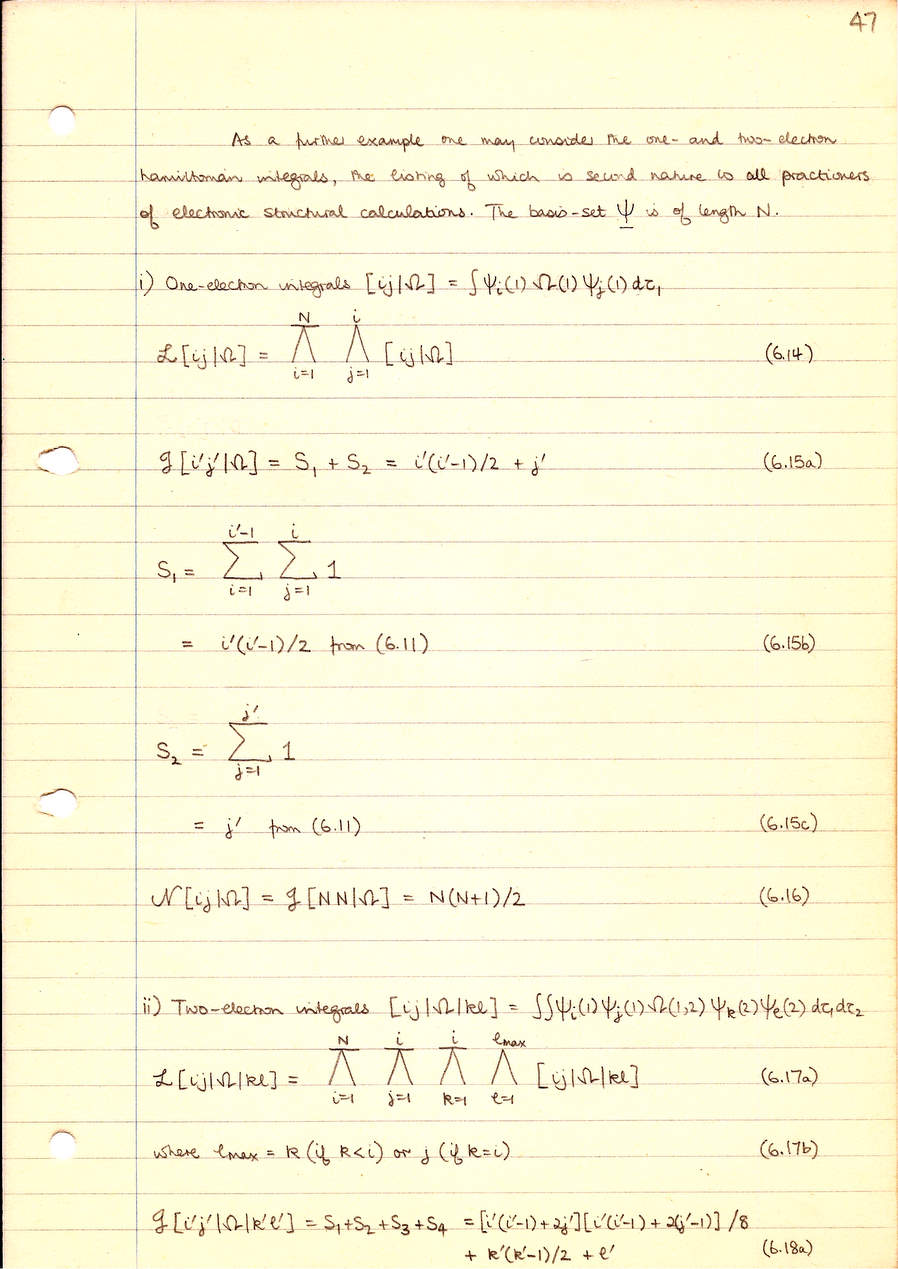 47
As a further example one may consider the one- and two-electron
hamiltonian integrals, the listing of which is second nature to all practioners
of electronic structural calculations. The basis-set Ψ is of length N.
i) One-electron integrals [ij|Ω] = ∫ψᵢ(1) Ω(1) ψⱼ(1) dτ₁
N i
ℒ[ij|Ω] = Λ Λ [ij|Ω] (6.14)
i=1 j=1
𝒥[i'j'|Ω] = S₁ + S₂ = i'(i'-1)/2 + j' (6.15a)
i'-1 i
S₁ = Σ Σ 1
i=1 j=1
= i'(i'-1)/2 from (6.11) (6.15b)
j'
S₂ = Σ 1
j=1
= j' from (6.11) (6.15c)
𝒩[ij|Ω] = 𝒥[NN|Ω] = N(N+1)/2 (6.16)
ii) Two-electron integrals [ij|Ω|kl] = ∫∫ψᵢ(1)ψⱼ(1)Ω(1,2)ψₖ(2)ψₗ(2) dτ₁dτ₂
N i i lmax
ℒ[ij|Ω|kl] = Λ Λ Λ Λ [ij|Ω|kl] (6.17a)
i=1 j=1 k=1 l=1
where lmax = k (if k<i) or j (if k=i) (6.17b)
𝒥[i'j'|Ω|k'l'] = S₁+S₂+S₃+S₄ = [i'(i'-1)+2j'][i'(i'-1)+2(j'-1)]/8
+ k'(k'-1)/2 + l' (6.18a)